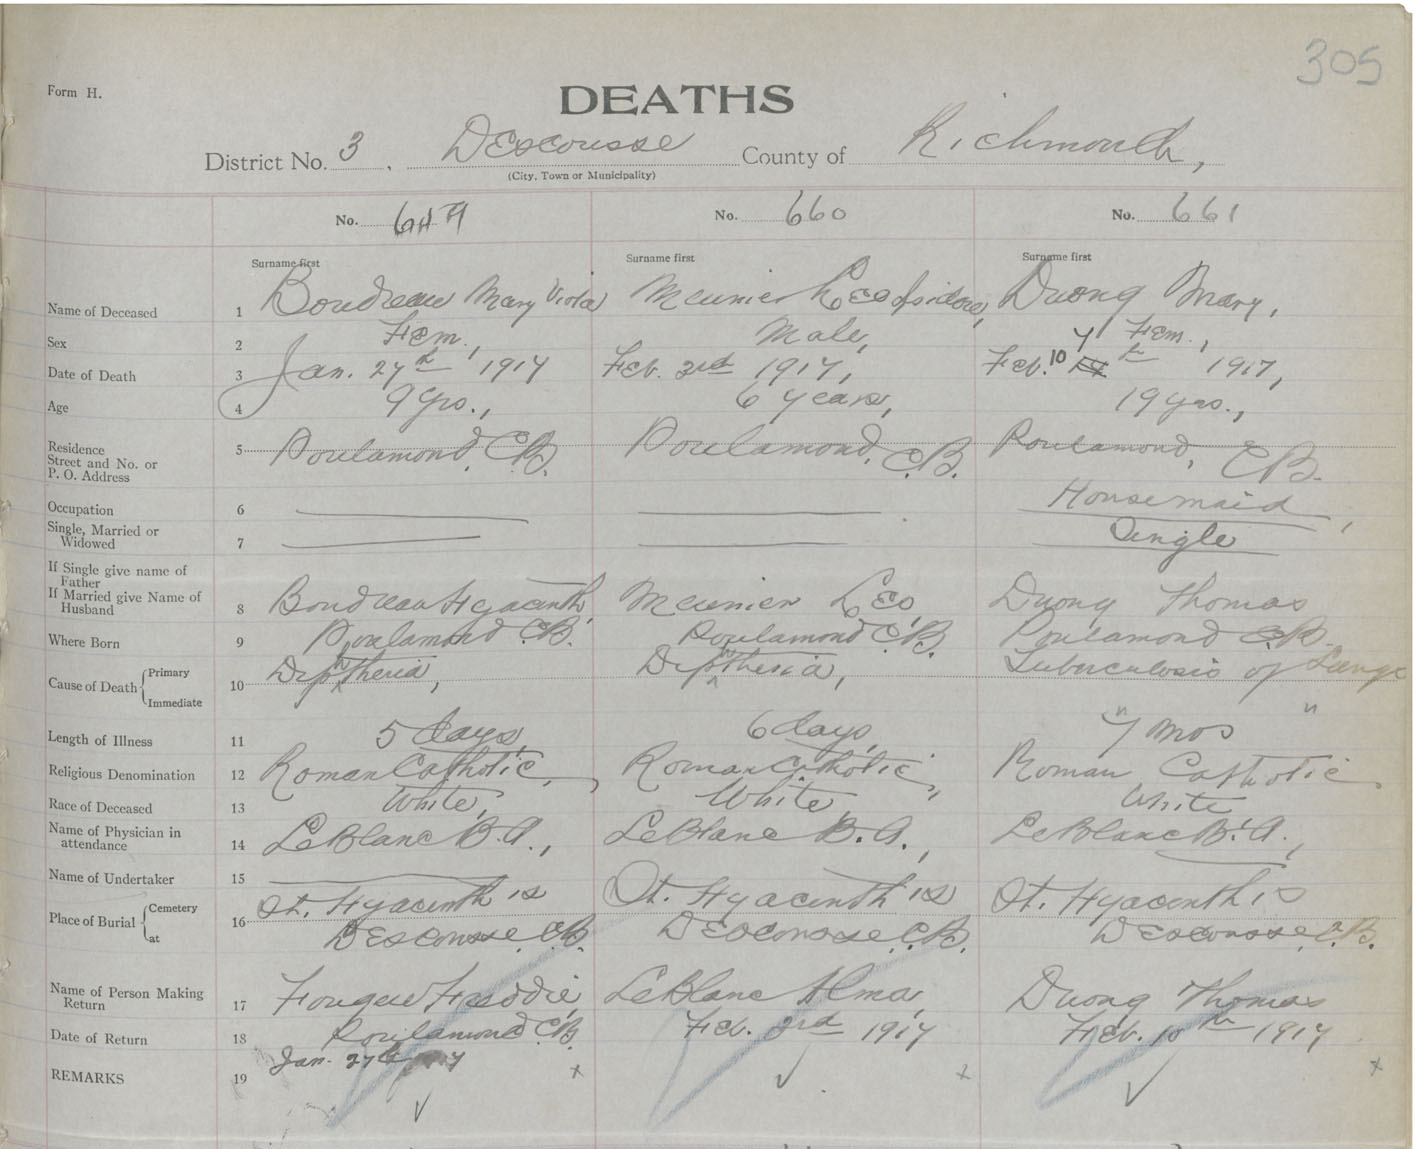 305
Form H.
DEATHS
District No. 3, Descousse County of Richmond,
(City, Town or Municipality)
No. No. 660 No. 661
Surname first Surname first Surname first
Name of Deceased 1 Boudreau Mary Viola Meunier Leo Isidore, Duong Mary,
Sex 2 Fem., Male, Fem.,
Date of Death 3 Jan. 27th 1917 Feb. 3rd 1917, Feb. 10 th 1917,
Age 4 9 yrs., 6 years, 19 yrs.,
Residence
Street and No. or
P. O. Address 5 Poulamond, C.B. Poulamond, C.B. Poulamond, C.B.
Occupation 6 Housemaid,
Single, Married or
Widowed 7 Single
If Single give name of
Father
If Married give Name of
Husband 8 Boudreau Hyacinth, Meunier Leo Duong Thomas
Where Born 9 Poulamond C.B. Poulamond C.B. Poulamond C.B.
Cause of Death Primary 10 Diphtheria, Diphtheria, Tuberculosis of Lungs
Immediate " "
Length of Illness 11 5 days, 6 days, 7 mos
Religious Denomination 12 Roman Catholic, Roman Catholic, Roman Catholic
Race of Deceased 13 White, White, White
Name of Physician in
attendance 14 LeBlanc B.A., LeBlanc B.A., LeBlanc B.A.,
Name of Undertaker 15
Place of Burial Cemetery 16 St. Hyacinth is St. Hyacinth is St. Hyacinth is
at Descousse, C.B. Descousse C.B. Descousse, C.B.
Name of Person Making
Return 17 Fougere Freddie, LeBlanc Alma, Duong Thomas
Date of Return 18 Poulamond C.B. Feb. 3rd 1917 Feb. 10th 1917
Jan. 27th
REMARKS 19